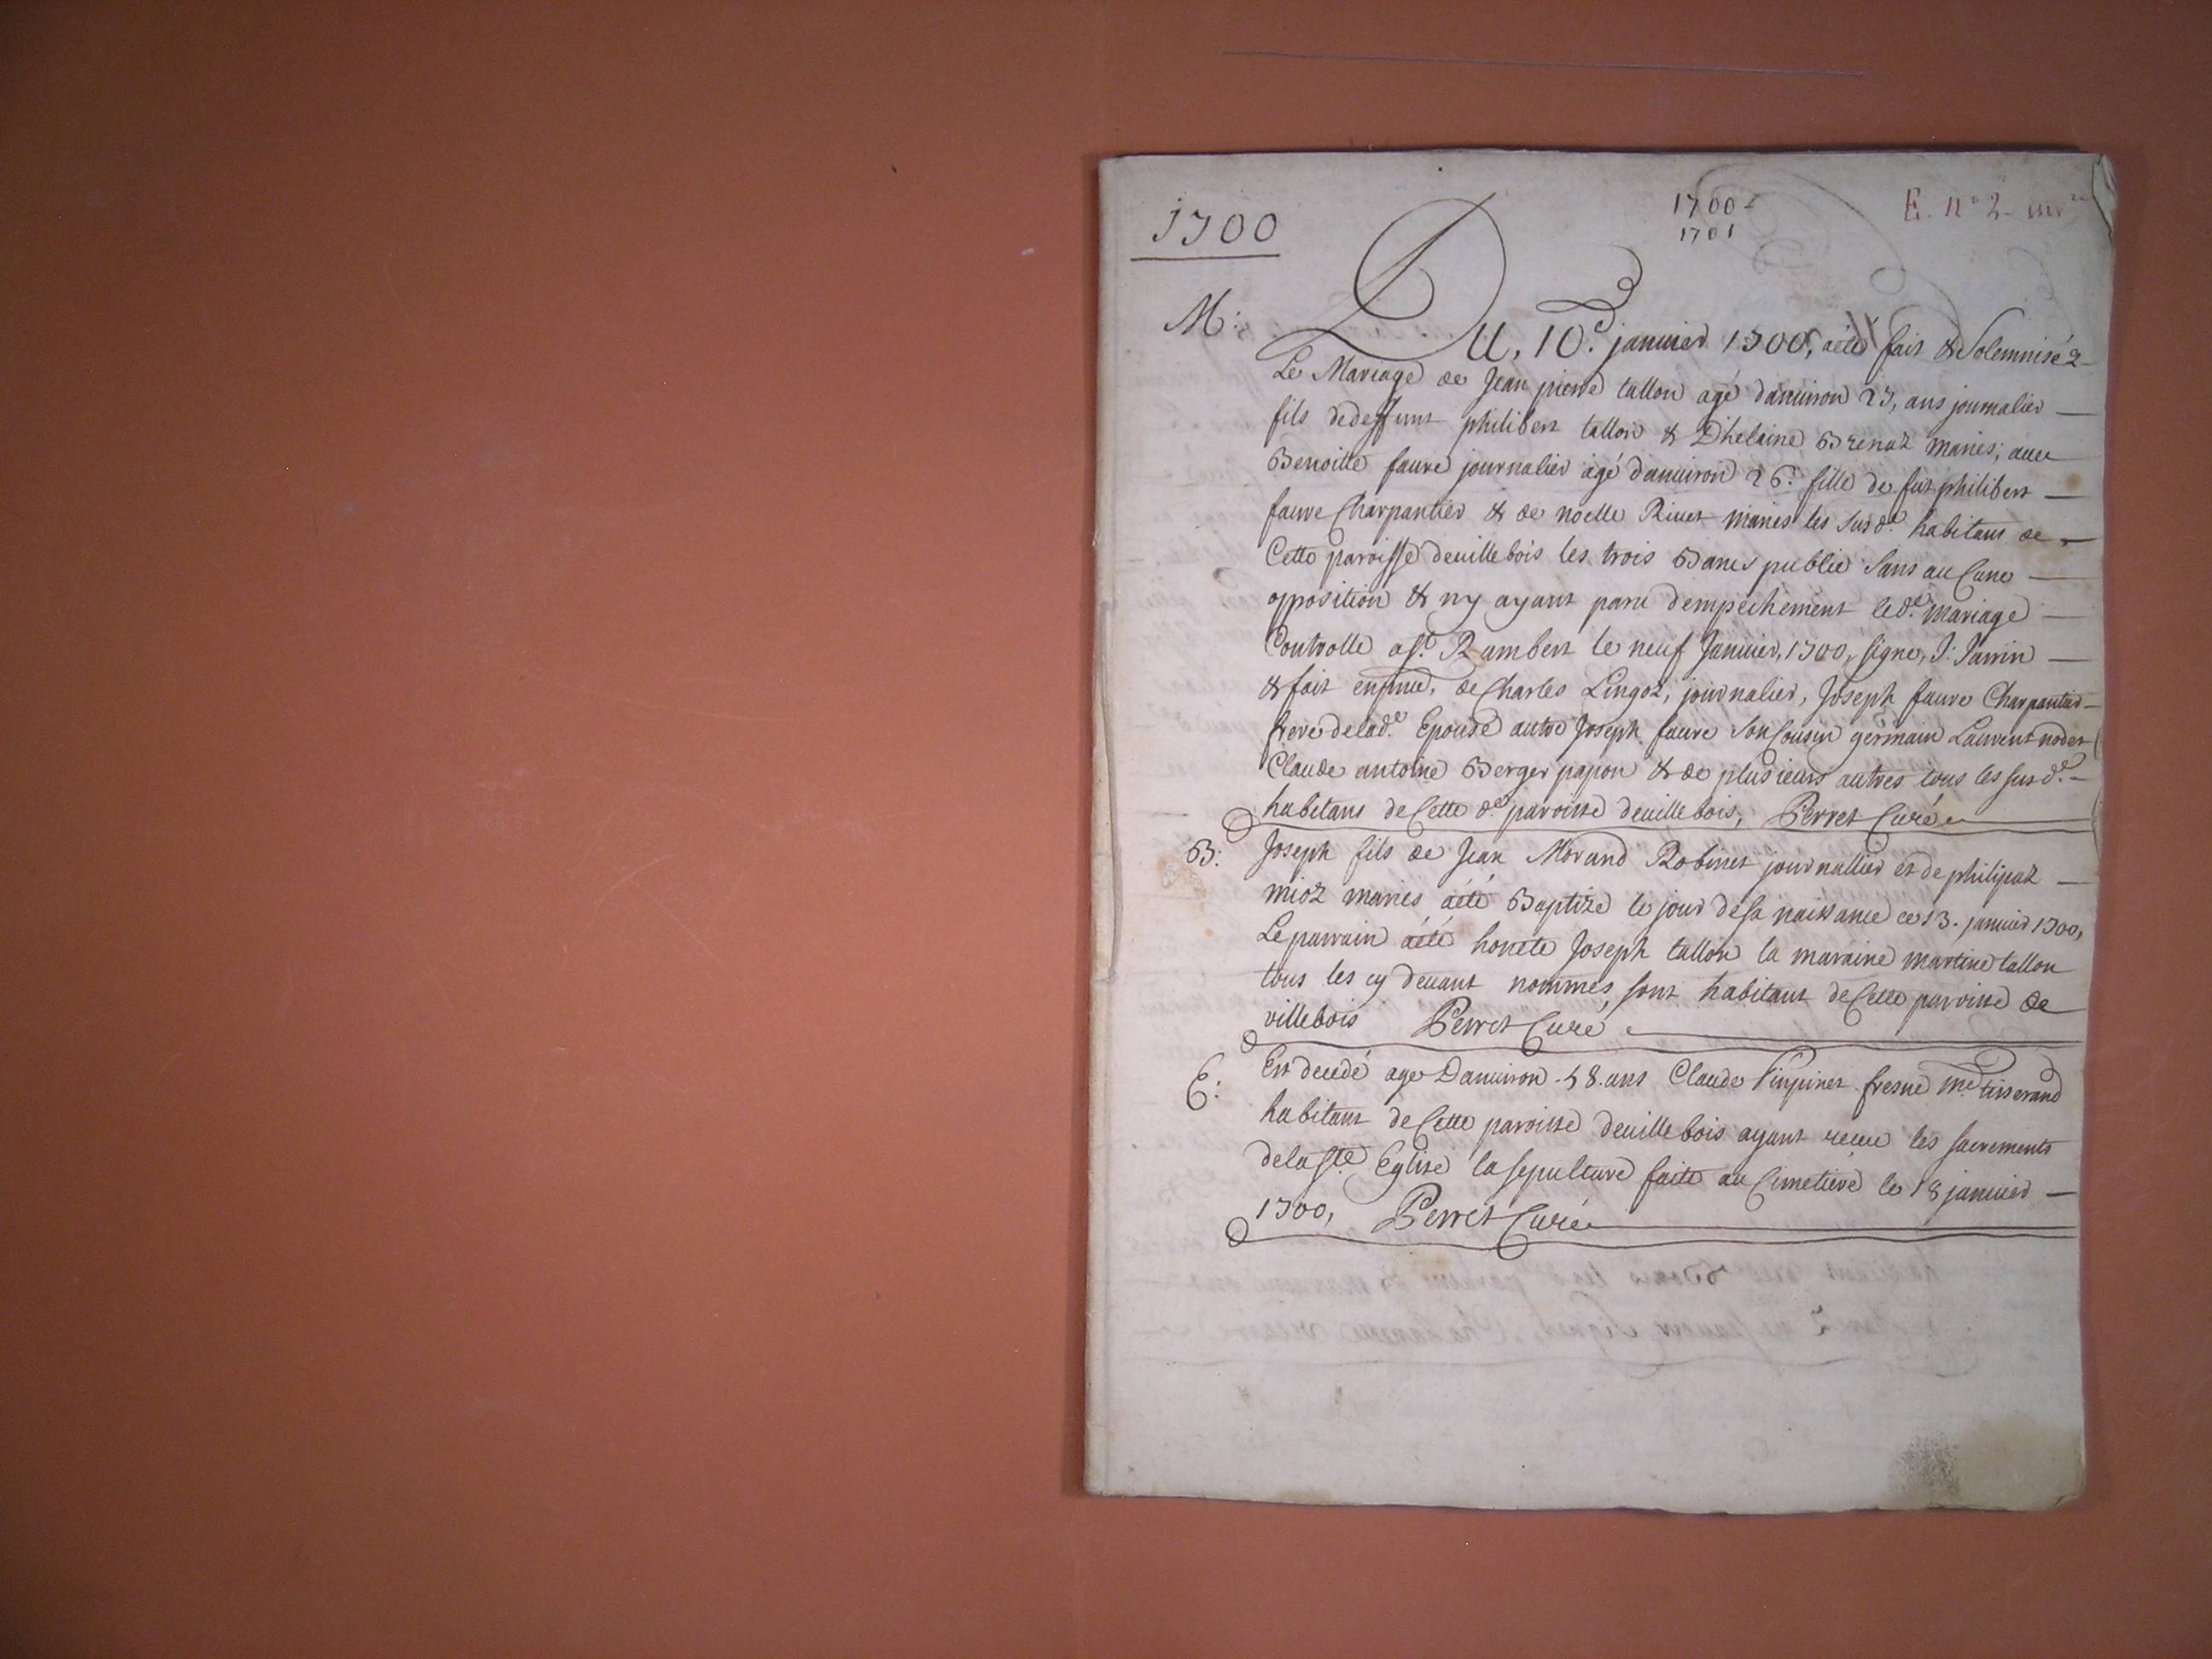 1700
1700-
1701
E. n° 2
M:
Du, 10.e janvier 1700, aété fait & Solemnisé
Le Mariage de Jean pierre tallon agé danuiron 27, ans journalier
fils dedeffunt philibert tallon & Dhelaine Brenaz maries, auec
Benoitte faure journalier agé danuiron 26. fille de fut philibert
faure Charpantier & de noelle Riuet maries les susd.e habitans de
Cette paroisse deuillebois les trois Bancs publié Sans auCune
opposition & ny ayant paru dempechement led.e mariage
Controlle a st. Rambert le neuf Januier, 1700, signe, J: Jarrin
& fait de Charles Lingot, journalier, Joseph faure Charpantier
frere delad.e Epouse autre Joseph faure Son Cousin germain Laurent nodet
Claude antoine Berger papon & de plusieurs autres tous les susd.e
habitans deCette d.e paroisse deuillebois, Perret Curé
B:
Joseph fils de Jean Morand Robinet journallier et de philipaz
mioz maries aété Baptize le jour desa naissance ce 13. januier 1700,
Leparrain aété honete Joseph tallon la maraine martine tallon
tous les cy deuant nommés, sont habitant deCette paroisse de
villebois Perret Curé
E:
Est decedé age Danuiron 48. ans Claude Pinpinet fresne m.e tisserand
habitant deCette paroisse deuillebois ayant receu les sacrements
delaste Eglise lasepulture faite au Cimetiere le 18 januier
1700, Perret Curé